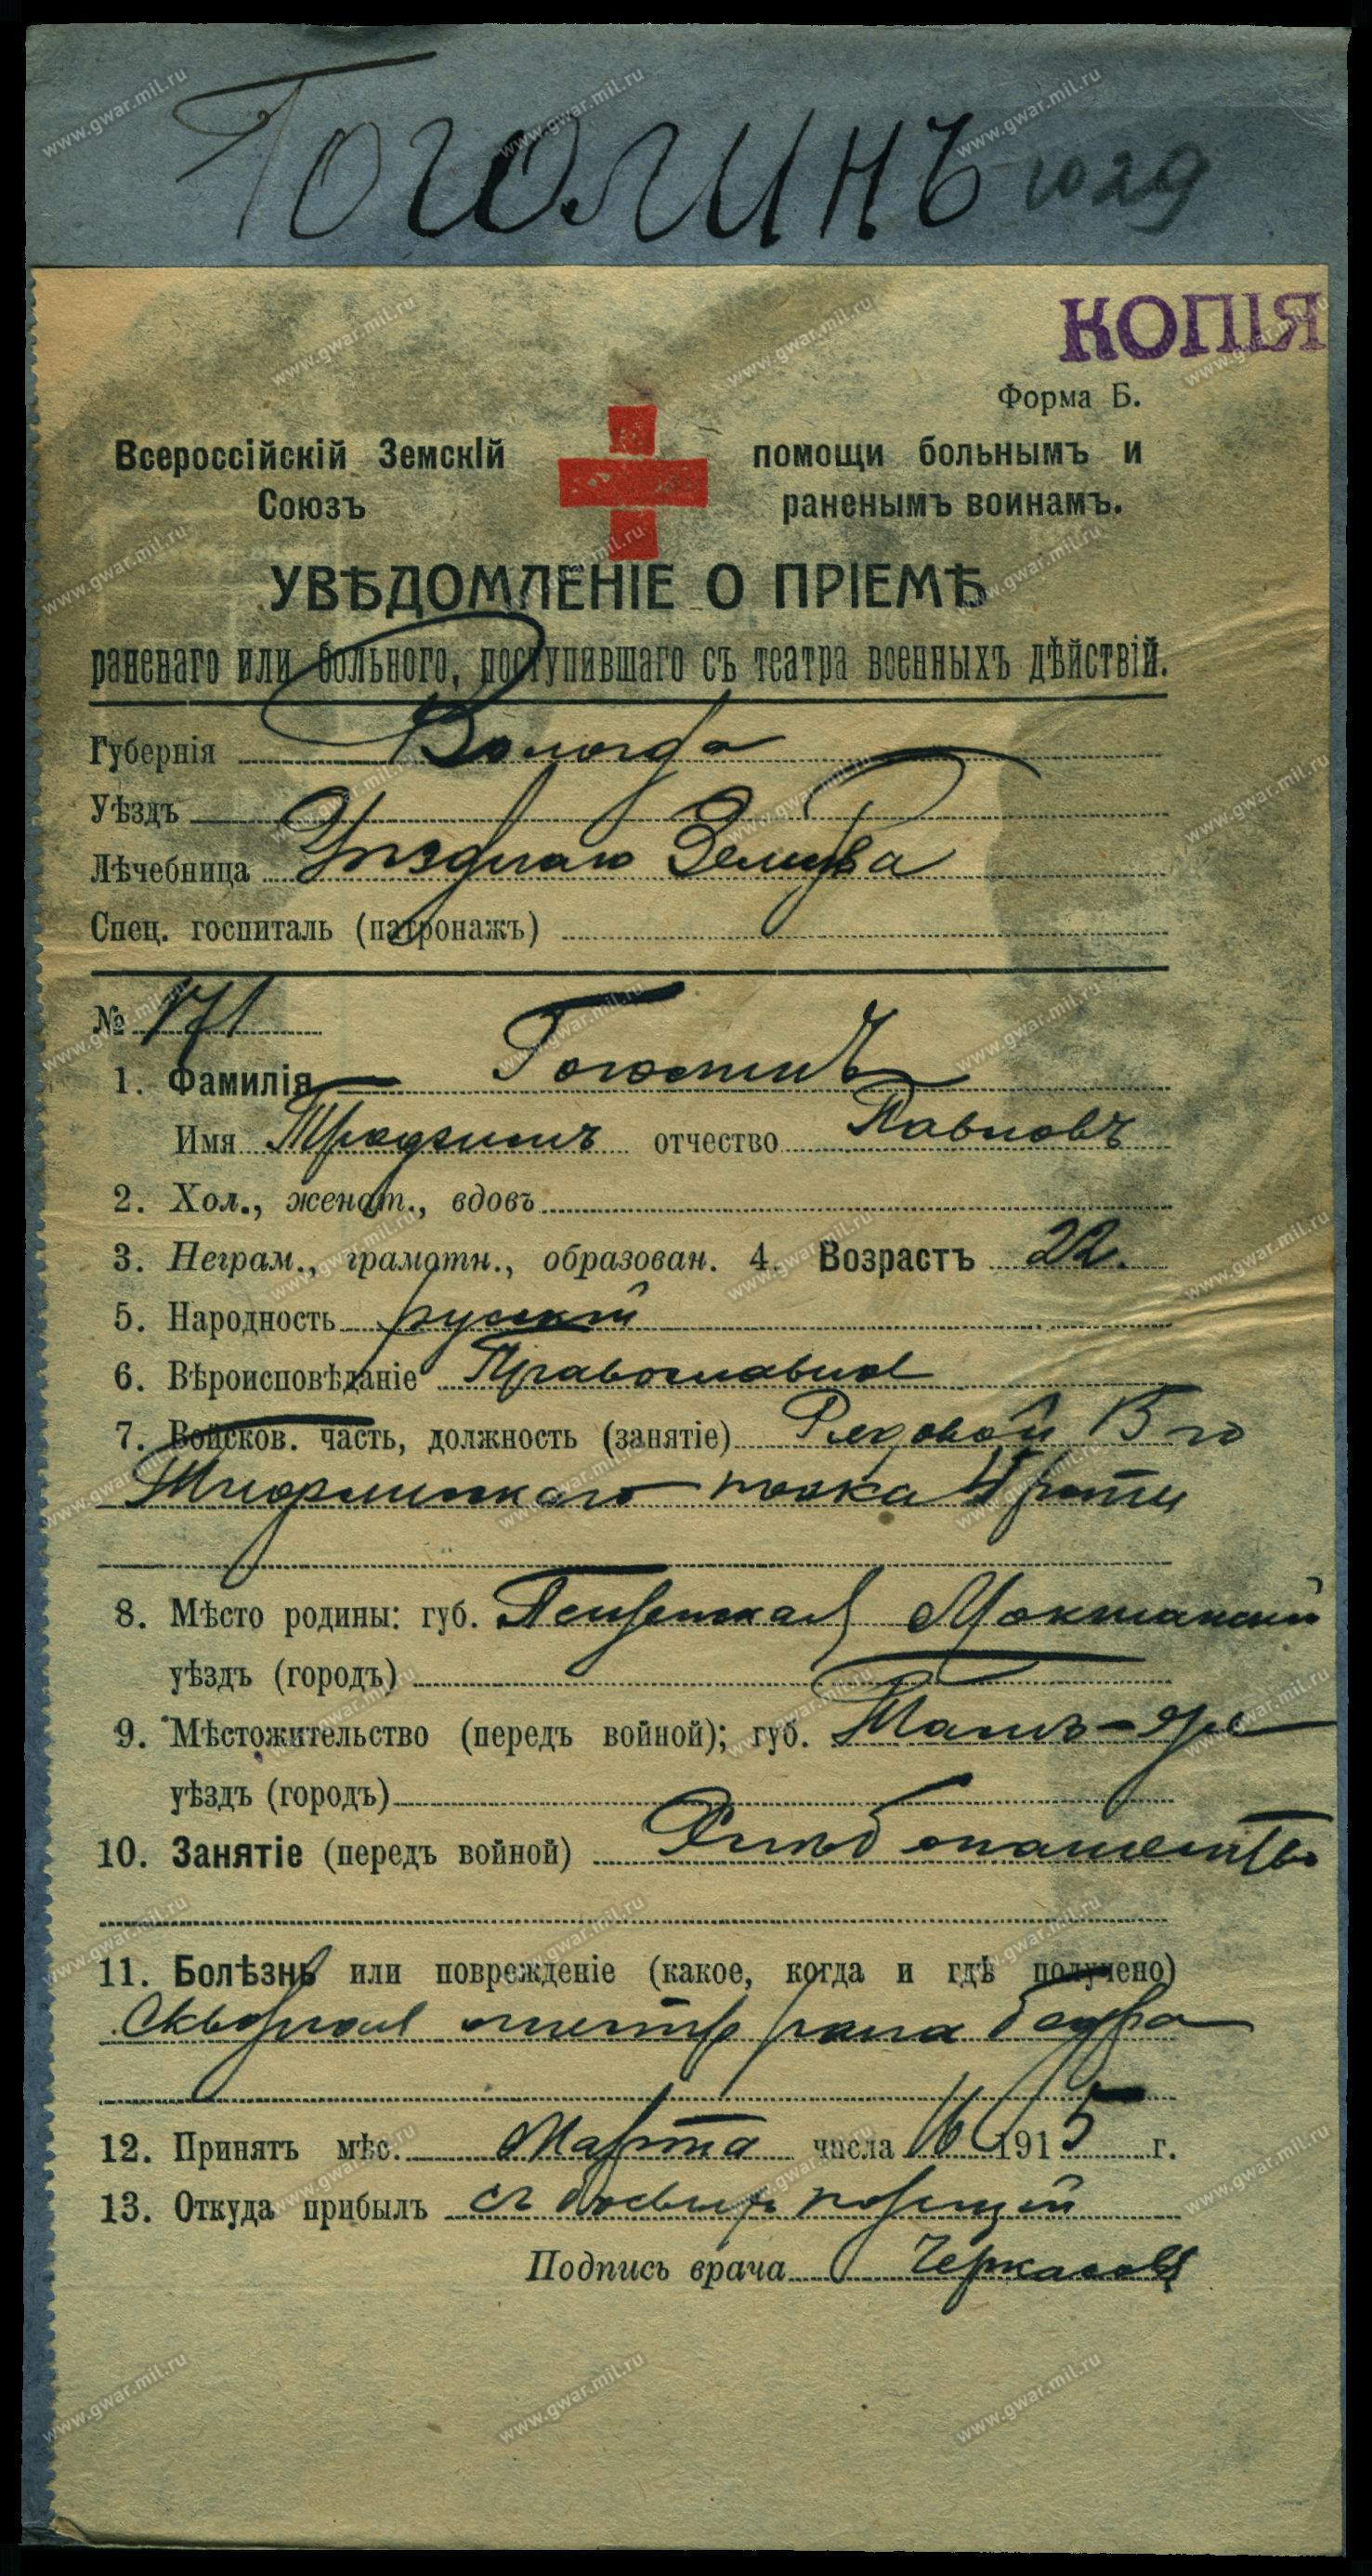 Гоголинъ 1029
КОПІЯ
Форма Б.
Всероссійскій Земскій помощи больнымъ и
Союзъ раненымъ воинамъ.
УВѢДОМЛЕНІЕ О ПРІЕМѢ
раненаго или больного, поступившаго съ театра военныхъ дѣйствій.
Губернія Вологда
Уѣздъ
Лѣчебница Уѣзднаго Земства
Спец. госпиталь (патронажъ)
№ 171
1. Фамилія Гоголинъ
Имя отчество Павловъ
2. Хол., женат., вдовъ
3. Неграм., грамотн., образован. 4. Возрастъ 22.
5. Народность русскій
6. Вѣроисповѣданіе Православна
7. Войсков. часть, должность (занятіе) Рядовой 15 го
полка 4 роты
8. Мѣсто родины: губ. Пензенская Мокшанскій
уѣздъ (городъ)
9. Мѣстожительство (передъ войной); губ. Тамъ-же
уѣздъ (городъ)
10. Занятіе (передъ войной) Хлѣбопашество
11. Болѣзнь или поврежденіе (какое, когда и гдѣ получено)
Сквозная огнестр рана бедра
12. Принятъ мѣс. Марта числа 16 1915 г.
13. Откуда прибылъ съ боевыхъ позицій
Подпись врача Черкасовъ
www.gwar.mil.ru